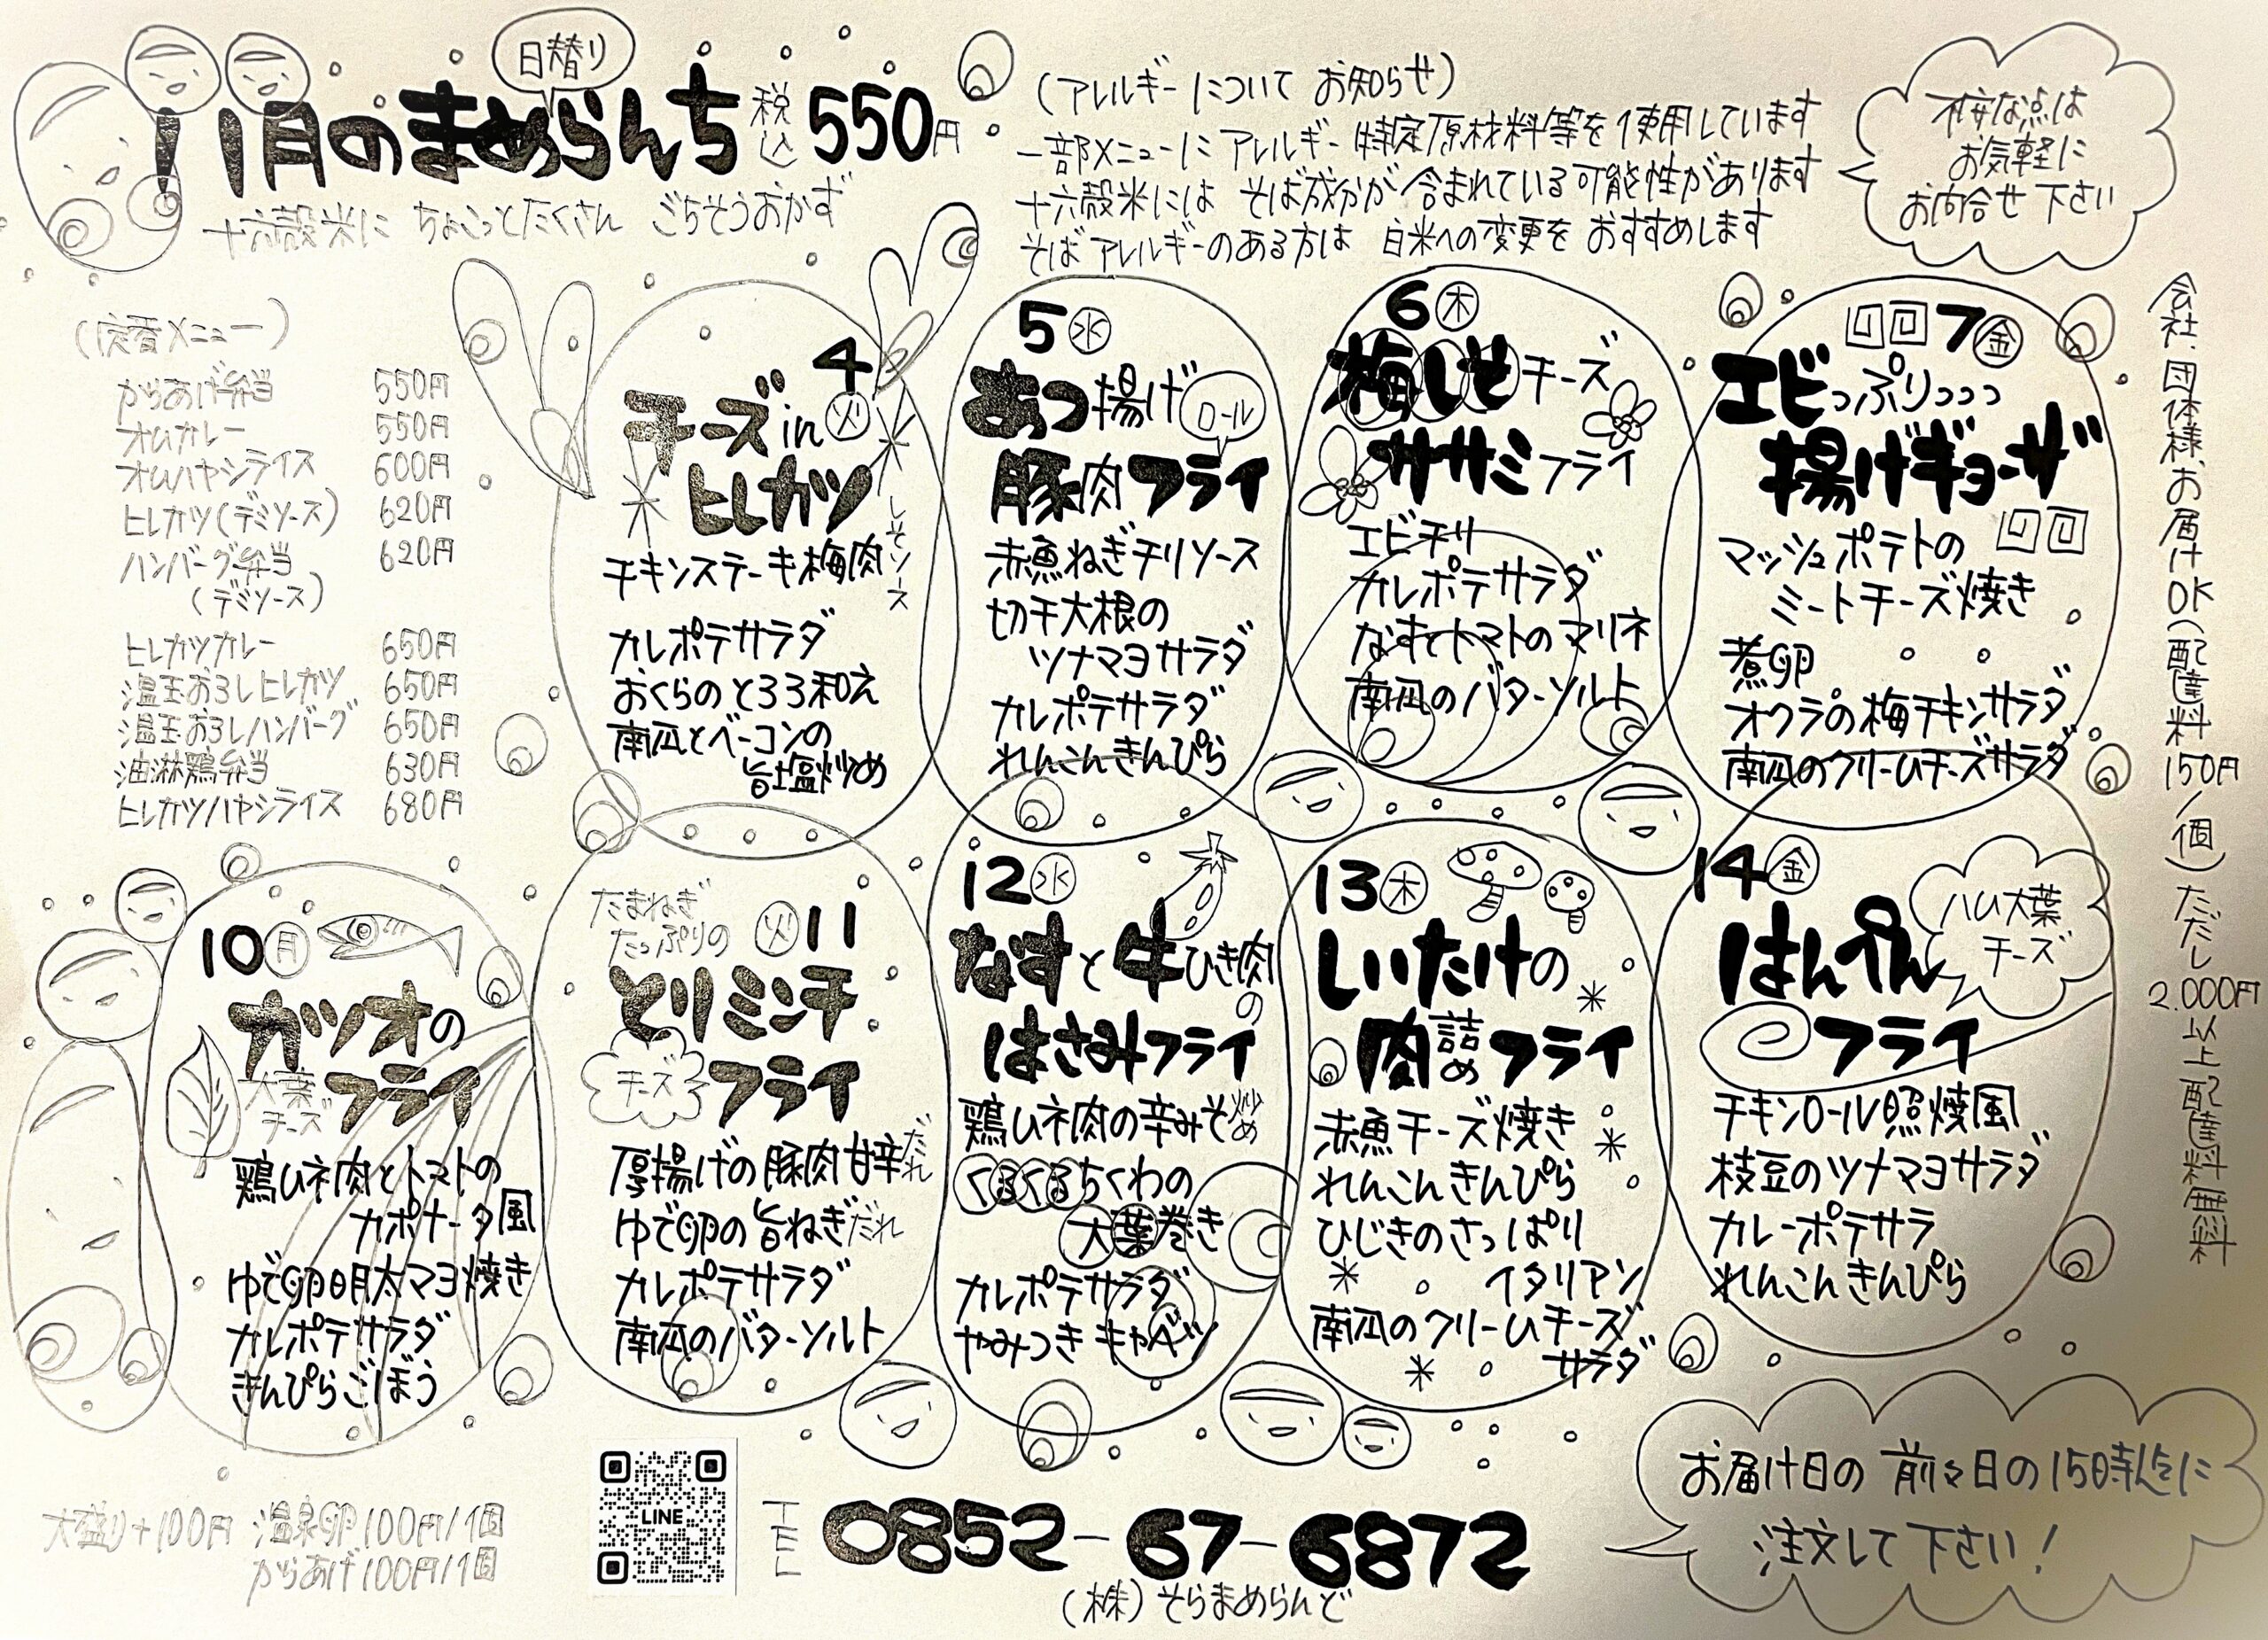 日替り
11月のまめらんち 税込 550円
十六穀米に ちょこっとたくさん ごちそうおかず
(アレルギーについて お知らせ)
一部メニューに アレルギー特定原材料等を使用しています
十六穀米には そば成分が含まれている可能性があります
そばアレルギーのある方は 白米への変更を おすすめします
不安な点は
お気軽に
お問合せ下さい
(定番メニュー)
からあげ弁当 550円
オムカレー 550円
オムハヤシライス 600円
ヒレカツ(デミソース) 620円
ハンバーグ弁当 620円
(デミソース)
ヒレカツカレー 650円
温玉おろしヒレカツ 650円
温玉おろしハンバーグ 650円
油淋鶏弁当 630円
ヒレカツハヤシライス 680円
4火
チーズin
ヒレカツ
チキンステーキ梅肉しそソース
カレポテサラダ
おくらのとろろ和え
南瓜とベーコンの
旨塩炒め
5水
あつ揚げロール
豚肉フライ
赤魚ねぎチリソース
切干大根の
ツナマヨサラダ
カレポテサラダ
れんこんきんぴら
6木
梅しそチーズ
ササミフライ
エビチリ
カレポテサラダ
なすとトマトのマリネ
南瓜のバターソルト
7金
エビっぷりっっっ
揚げギョーザ
マッシュポテトの
ミートチーズ焼き
煮卵
オクラの梅チキンサラダ
南瓜のクリームチーズサラダ
会社、団体様、お届けOK(配達料150円/個)ただし2,000円以上配達料無料
10月
カツオの
大葉チーズ
フライ
鶏ムネ肉とトマトの
カポナータ風
ゆで卵明太マヨ焼き
カレポテサラダ
きんぴらごぼう
火11
たまねぎ
たっぷりの
とりミンチ
チーズ フライ
厚揚げの豚肉甘辛だれ
ゆで卵の旨ねぎだれ
カレポテサラダ
南瓜のバターソルト
12水
なすと牛ひき肉の
はさみフライ
鶏ムネ肉の辛みそ炒め
くるくるちくわの
大葉巻き
カレポテサラダ
やみつきキャベツ
13木
しいたけの
肉詰めフライ
赤魚チーズ焼き
れんこんきんぴら
ひじきのさっぱり
イタリアン
南瓜のクリームチーズ
サラダ
14金
はんぺん
ハム大葉
チーズ
フライ
チキンロール照焼風
枝豆のツナマヨサラダ
カレーポテサラ
れんこんきんぴら
大盛り+100円 温泉卵100円/1個
からあげ100円/1個
LINE
TEL 0852-67-6872
(株)そらまめらんど
お届け日の前々日の15時迄に
注文して下さい!